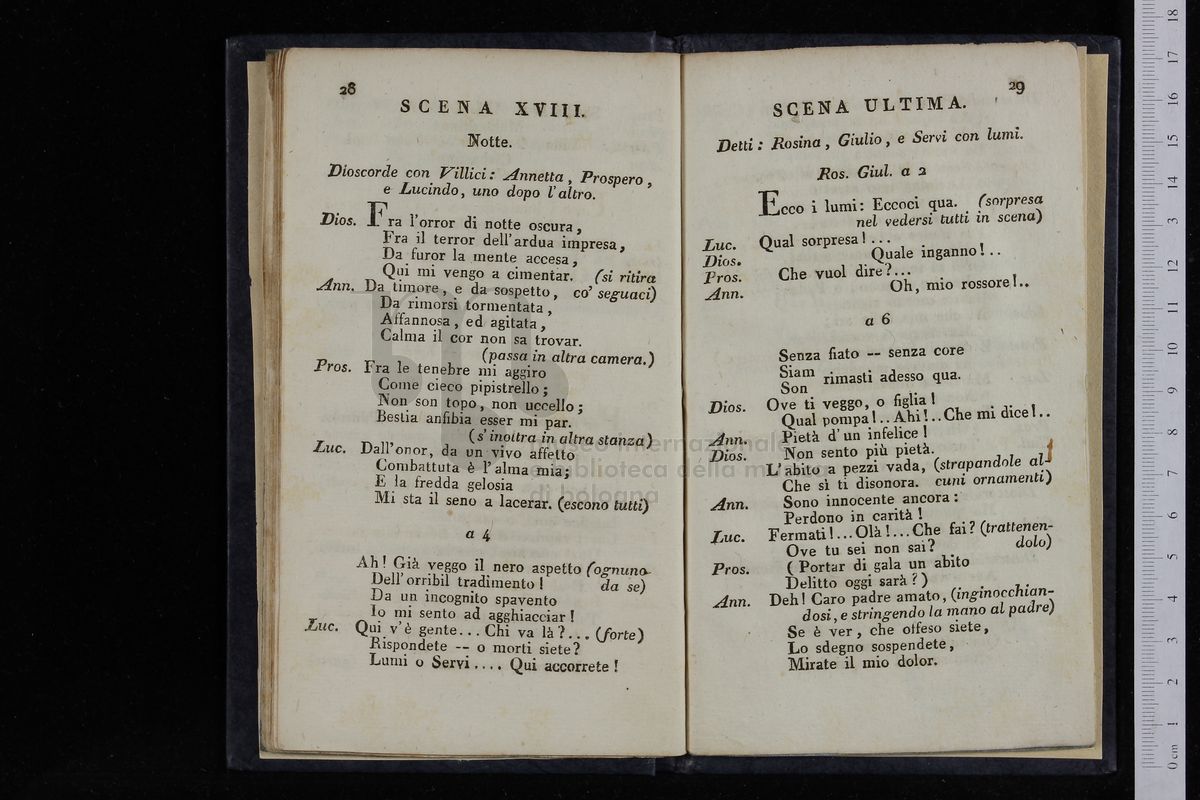 28
SCENA XVIII.
Notte.
Dioscorde con Villici: Annetta, Prospero,
e Lucindo, uno dopo l'altro.
Dios. Fra l'orror di notte oscura,
Fra il terror dell'ardua impresa,
Da furor la mente accesa,
Qui mi vengo a cimentar. (si ritira
Ann. Da timore, e da sospetto, co' seguaci)
Da rimorsi tormentata,
Affannosa, ed agitata,
Calma il cor non sa trovar.
(passa in altra camera.)
Pros. Fra le tenebre mi aggiro
Come cieco pipistrello;
Non son topo, non uccello;
Bestia anfibia esser mi par.
(s'inoltra in altra stanza)
Luc. Dall'onor, da un vivo affetto
Combattuta è l'alma mia;
E la fredda gelosia
Mi sta il seno a lacerar. (escono tutti)
a 4
Ah! Già veggo il nero aspetto (ognuno
Dell'orribil tradimento! da se)
Da un incognito spavento
Io mi sento ad agghiacciar!
Luc. Qui v'è gente... Chi va là?... (forte)
Rispondete -- o morti siete?
Lumi o Servi.... Qui accorrete!
29
SCENA ULTIMA.
Detti: Rosina, Giulio, e Servi con lumi.
Ros. Giul. a 2
Ecco i lumi: Eccoci qua. (sorpresa
nel vedersi tutti in scena)
Luc. Qual sorpresa!...
Dios. Quale inganno!..
Pros. Che vuol dire?...
Ann. Oh, mio rossore!..
a 6
Senza fiato -- senza core
Siam
Son rimasti adesso qua.
Dios. Ove ti veggo, o figlia!
Qual pompa!.. Ahi!.. Che mi dice!..
Ann. Pietà d'un infelice!
Dios. Non sento più pietà.
L'abito a pezzi vada, (strapandole al-
Che sì ti disonora. cuni ornamenti)
Ann. Sono innocente ancora:
Perdono in carità!
Luc. Fermati!...Olà!...Che fai? (trattenen-
Ove tu sei non sai? dolo)
Pros. (Portar di gala un abito
Delitto oggi sarà?)
Ann. Deh! Caro padre amato, (inginocchian-
dosi, e stringendo la mano al padre)
Se è ver, che offeso siete,
Lo sdegno sospendete,
Mirate il mio dolor.
museo internazionale
e biblioteca della musica
di bologna
0 cm 1 2 3 4 5 6 7 8 9 10 11 12 13 14 15 16 17 18